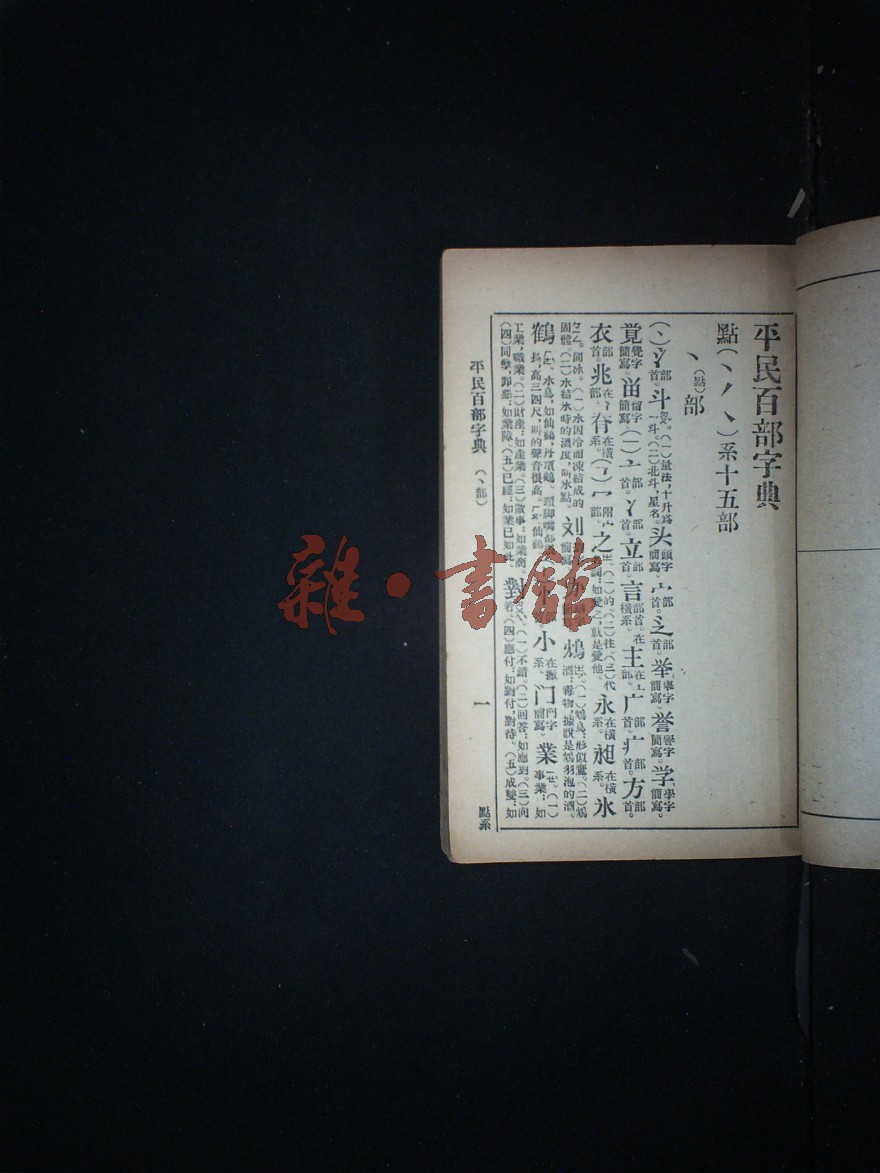 平民百部字典
點(丶丿㇏)系十五部
丶(點)部
(丶)氵部首。斗(一)量法,十升爲一斗。(二)北斗,星名。头頭字簡寫。宀部首。辶部首。举舉字簡寫。誉譽字簡寫。学學字簡寫。
覚覺字簡寫。畄留字簡寫。(亠)亠部首。冫部首。立部首。言部首。在橫系。主在亠部。广部首。疒部首。方部首。
衣部首。兆在冫部。脊在橫系。(冖)冖附宀部。之(一)的。(二)往。(三)代詞:如愛之,就是愛他。永在橫系。昶在橫系。氷
同冰。(一)水因冷而凍結成的固體。(二)水結氷時的溫度,叫氷點。刘簡寫。鴆(一)鴆鳥:形似鷹。(二)鴆酒:毒物,據說是鴆羽泡的酒。
鶴水鳥,如仙鶴,丹頂鶴。頸脚嘴都長,高三四尺,叫的聲音很高。仙鶴 小在撇系。门門字簡寫。業(一)事業:如
工業,職業。(二)財產:如產業。(三)做事:如業商。(四)同孽,罪惡:如業障。(五)已經:如業已如此。對(一)不錯。(二)回答:如應對。(三)向着。(四)應付:如對付,對待。(五)成雙:如
平民百部字典 (丶部) 一 點系
雜·書館